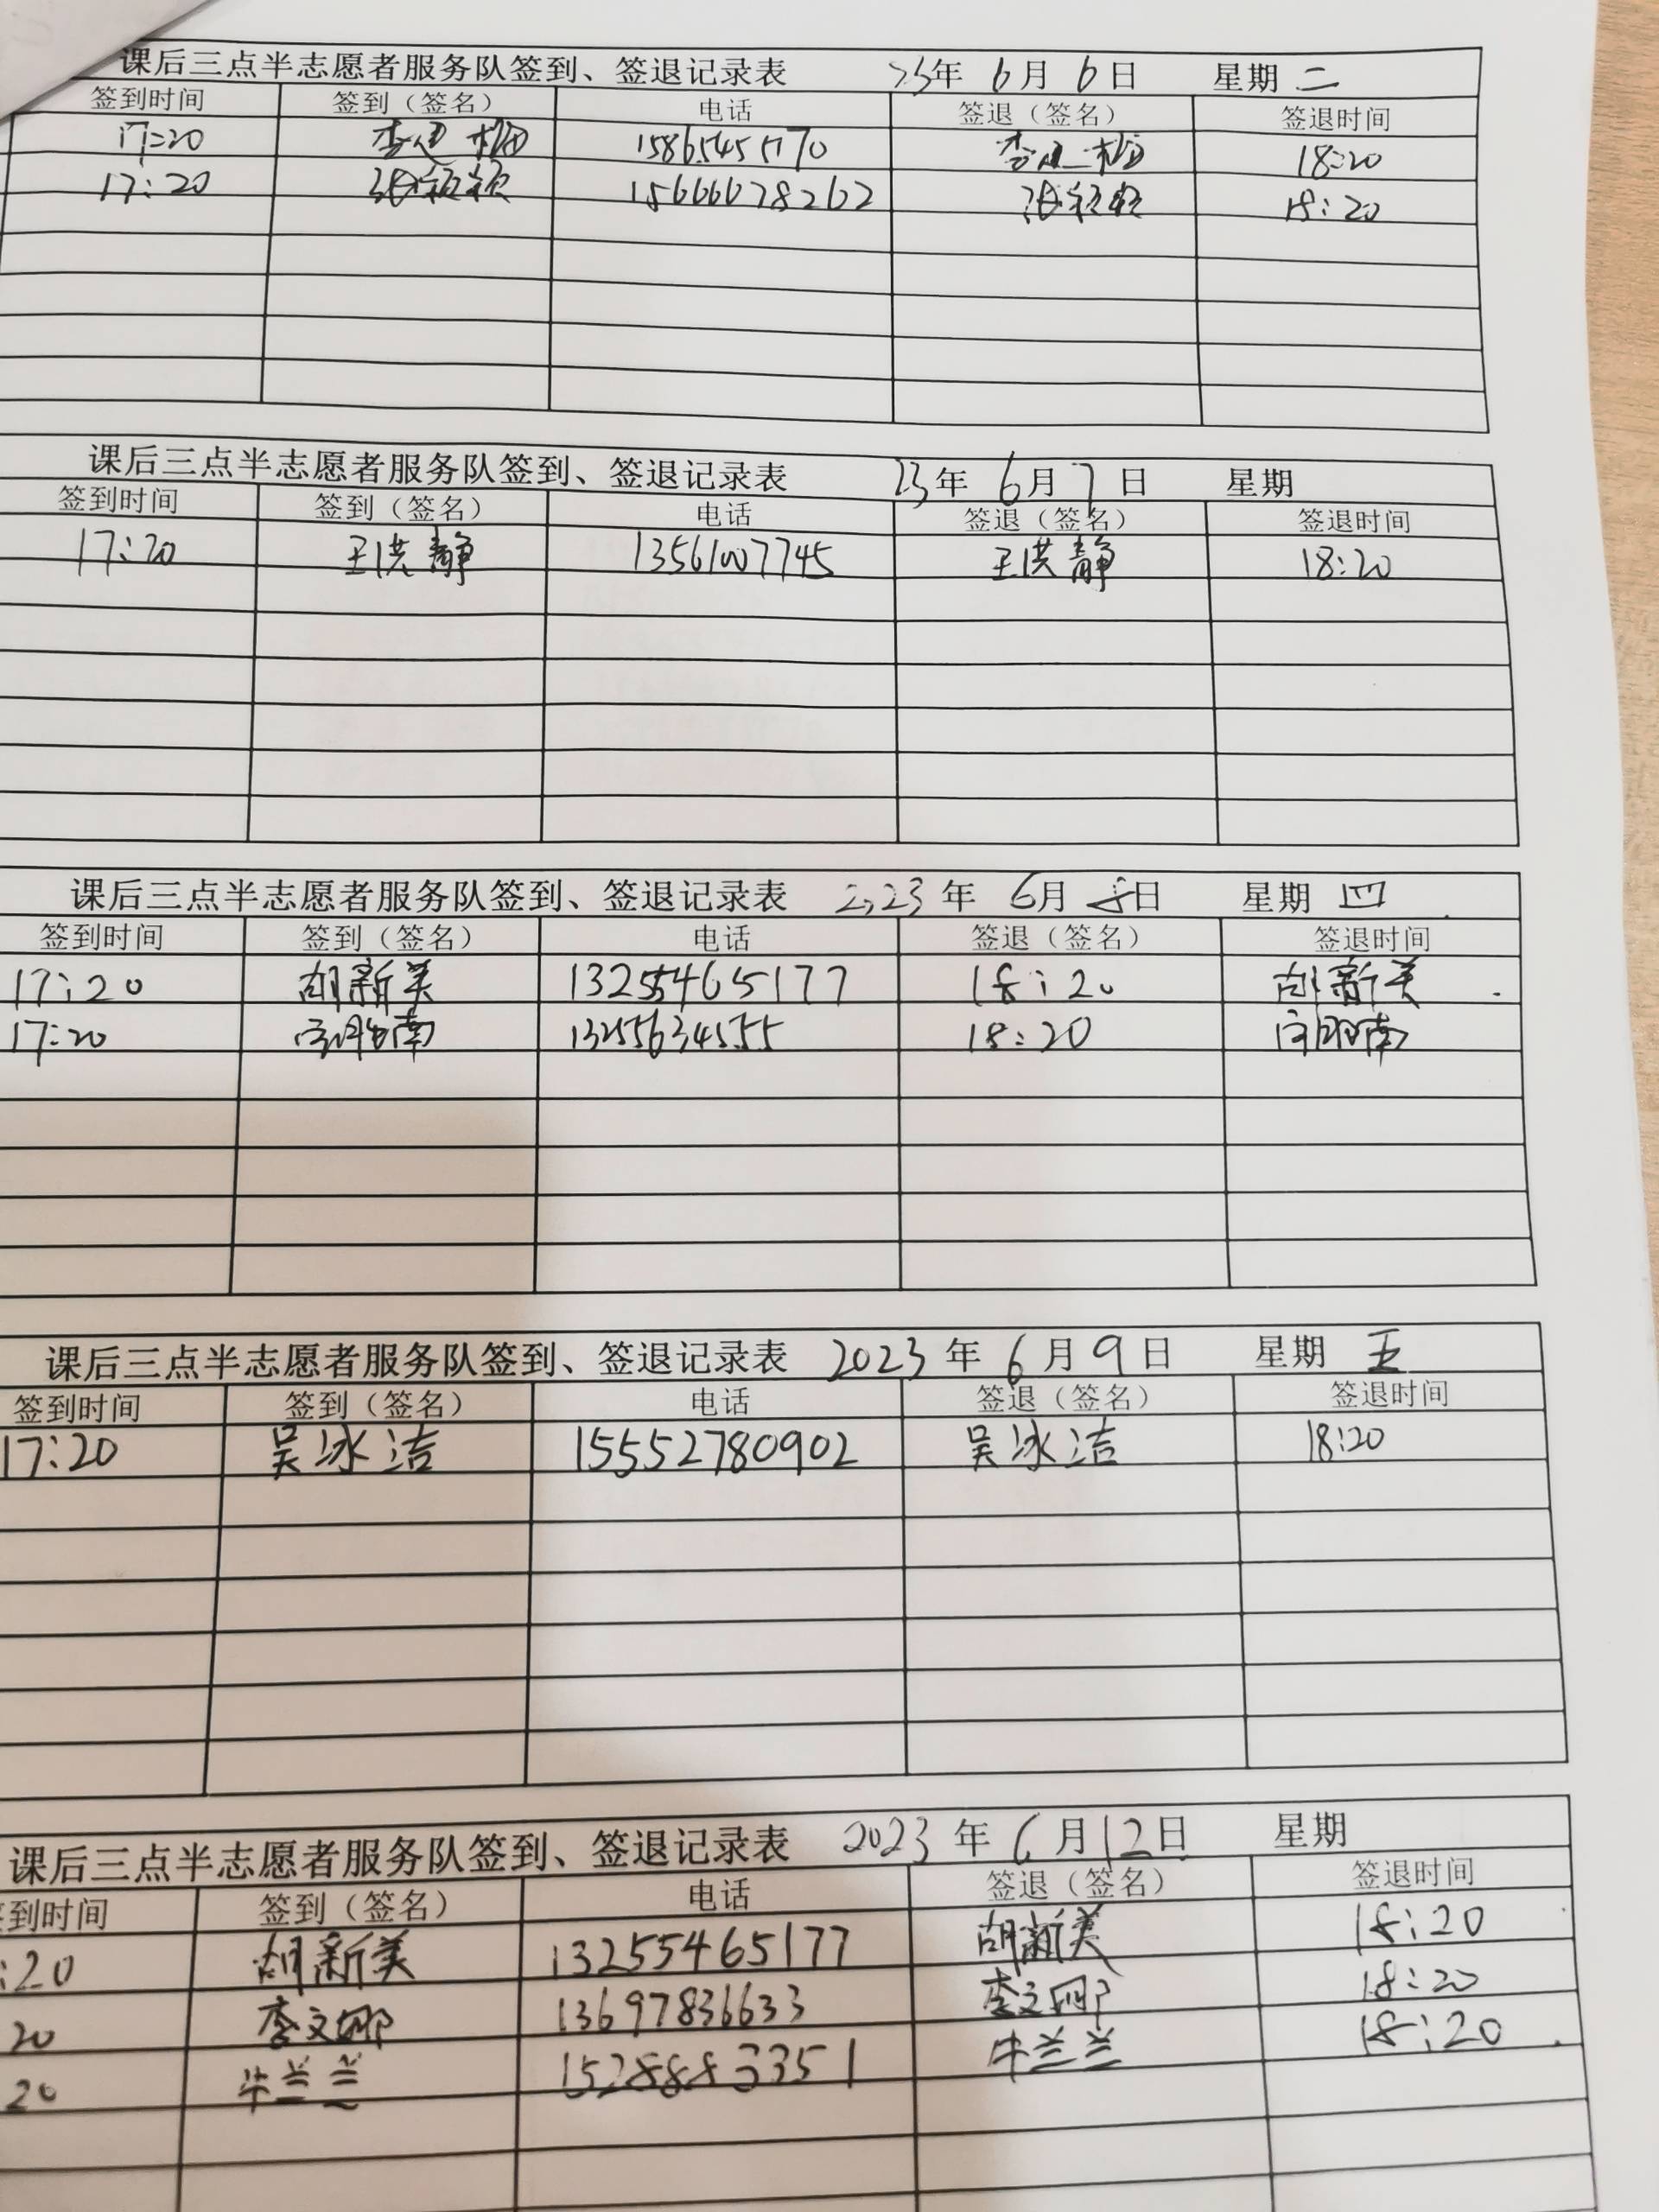 课后三点半志愿者服务队签到、签退记录表 23年 6月 6日 星期 二
签到时间 签到（签名） 电话 签退（签名） 签退时间
17:20 18:20
17:20 15666678262 18:20
课后三点半志愿者服务队签到、签退记录表 23年 6月 7日 星期
签到时间 签到（签名） 电话 签退（签名） 签退时间
17:20 王洪静 13561007745 王洪静 18:20
课后三点半志愿者服务队签到、签退记录表 2023年 6月 8日 星期 四
签到时间 签到（签名） 电话 签退（签名） 签退时间
17:20 胡新美 13255465177 18:20 胡新美
17:20 13255634555 18:20
课后三点半志愿者服务队签到、签退记录表 2023年 6月 9日 星期 五
签到时间 签到（签名） 电话 签退（签名） 签退时间
17:20 吴冰洁 15552780902 吴冰洁 18:20
课后三点半志愿者服务队签到、签退记录表 2023年 6月 12日 星期
到时间 签到（签名） 电话 签退（签名） 签退时间
:20 胡新美 13255465177 胡新美 18:20
20 李文娜 13697836633 李文娜 18:20
20 牛兰兰 15288883351 牛兰兰 18:20